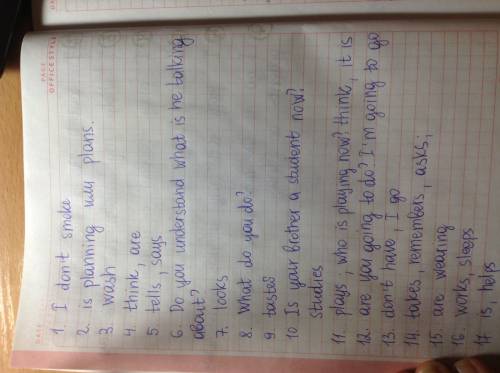 PAGE
DATE
OFFICE STYLE
1. I don't smoke
2. is planning my plans.
3. wash
4. think, are
5. tells, says
6. Do you understand what is he talking
about?
7. looks
8. What do you do?
9. tastes
10 Is your brother a student now?
Studies
11. plays, who is playing now? think, it is
12. are you going to do? I'm going to go
13. don't have, I go
14. takes, remembers, asks;
15. are wearing
16. works, sleeps
17. is, helps